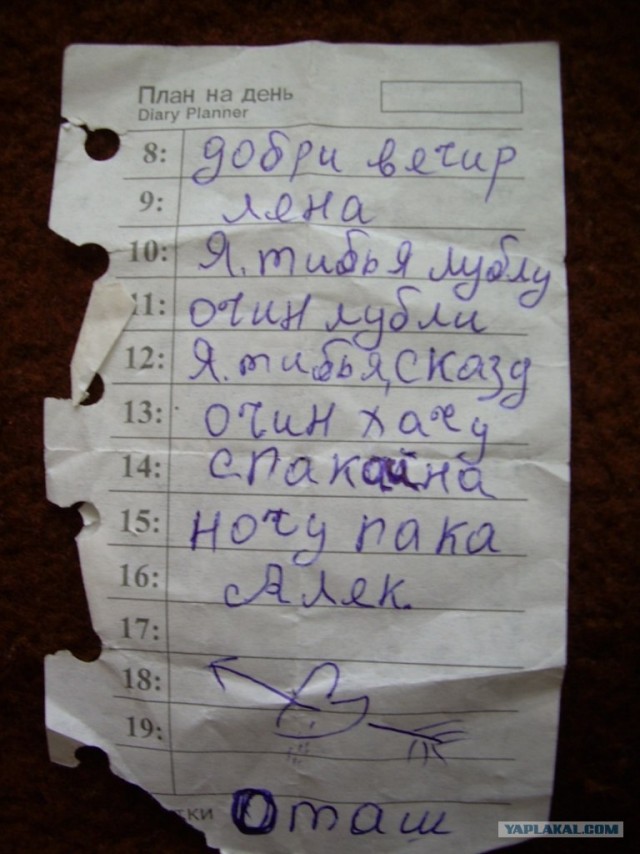 План на день
Diary Planner
8: добри вечир
9: лена
10: Я. тибья лублу
11: очин лубли
12: Я. тибья, сказд
13: очин хачу
14: спакайна
15: ночу пака
16: Аляк.
17:
18:
19:
тки Оташ
YAPLAKAL.COM